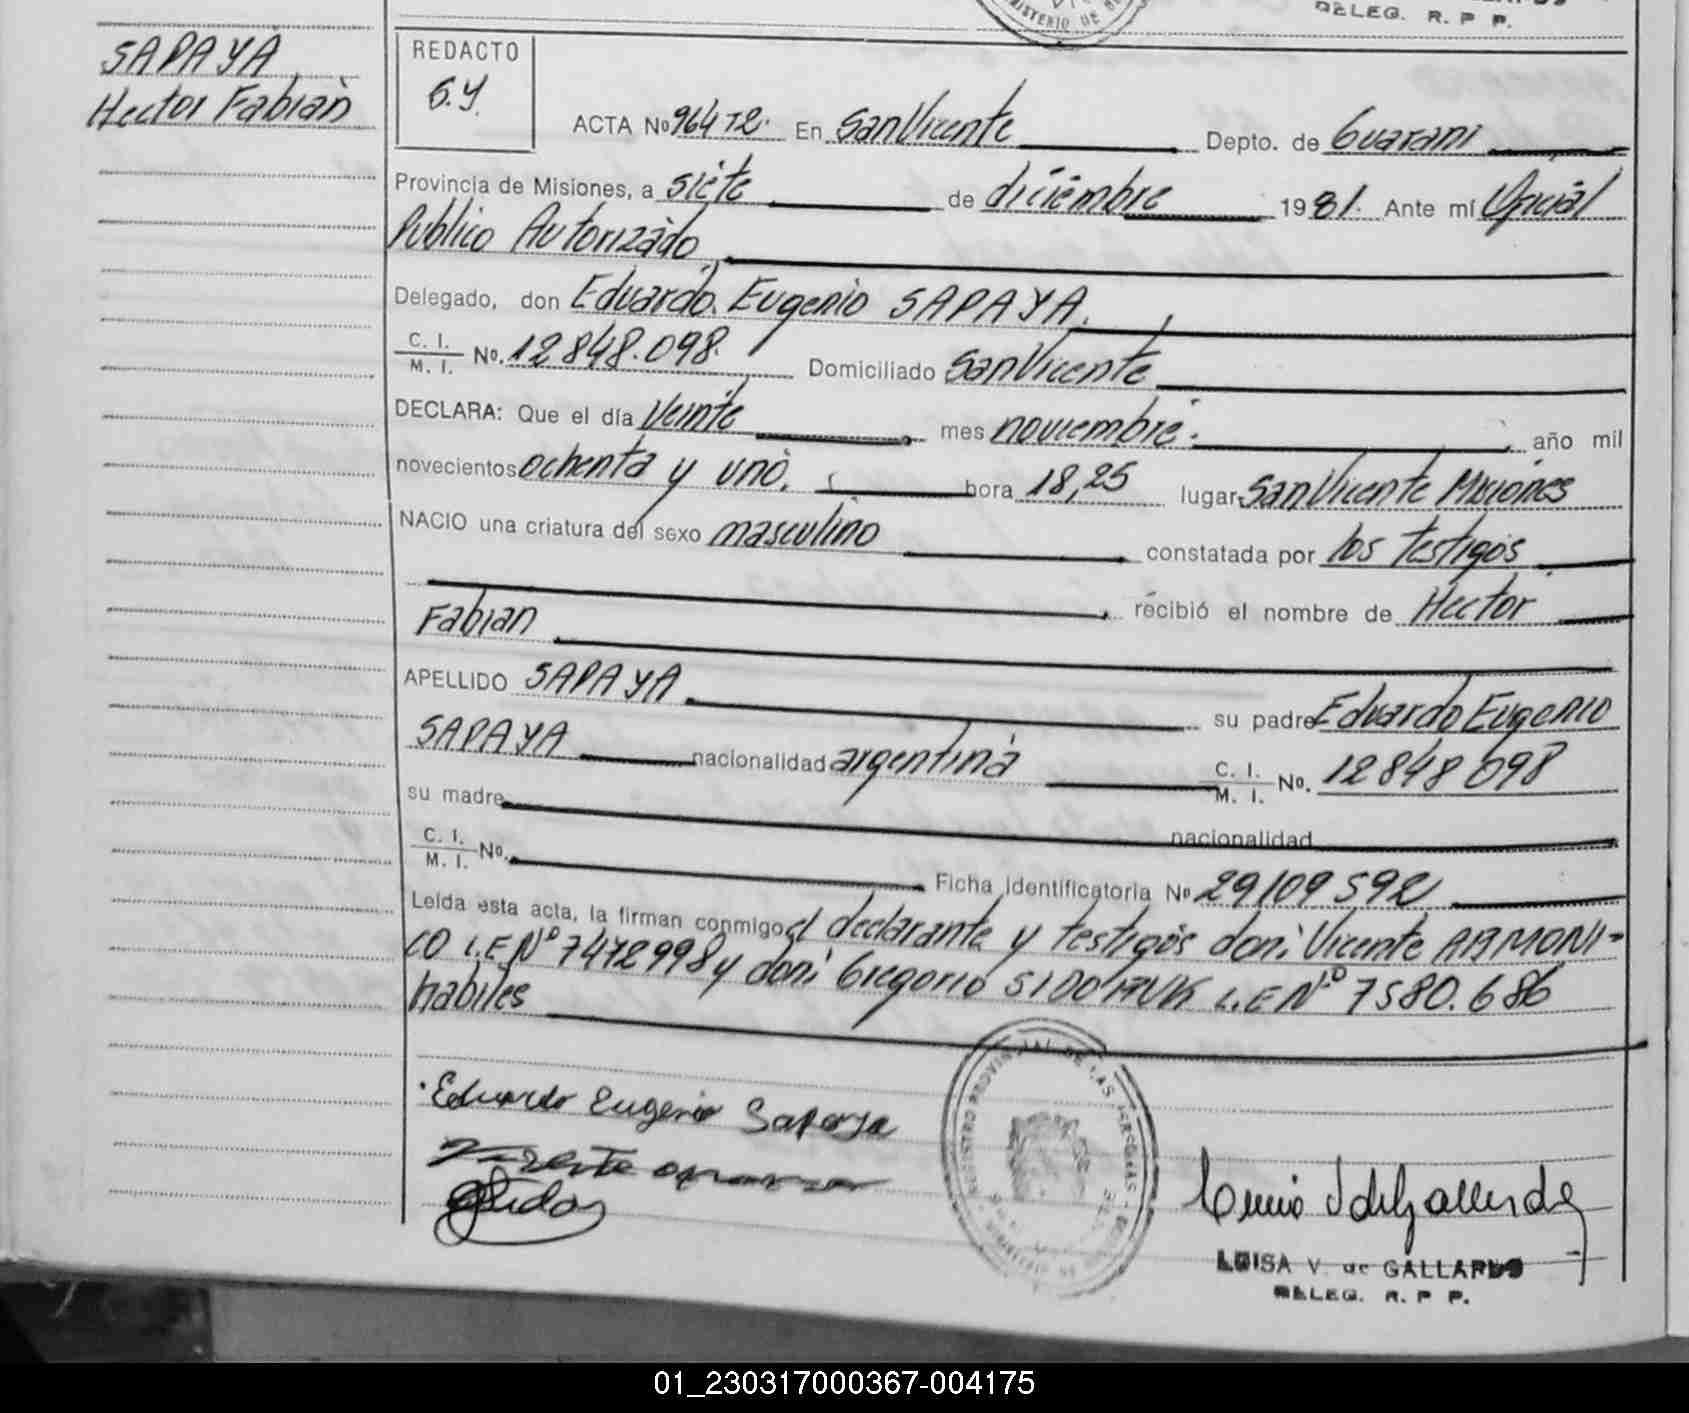 MINISTERIO DE
DELEG. R. P P.
SAPAYA
Hector Fabian
REDACTO
G.Y.
ACTA Nº 964 T2. En San Vicente Depto. de Guarani
Provincia de Misiones, a siete de diciembre 1981. Ante mí Oficial
Publico Autorizado
Delegado, don Eduardo Eugenio SAPAYA.
C. I.
M. I. Nº. 12848.098. Domiciliado San Vicente
DECLARA: Que el día Veinte mes noviembre. año mil
novecientos ochenta y uno. hora 18,25 lugar San Vicente Misiones
NACIO una criatura del sexo masculino constatada por los testigos
recibió el nombre de Hector
Fabian
APELLIDO SAPAYA su padre Eduardo Eugenio
SAPAYA nacionalidad argentina C. I.
M. I. No. 12848098
su madre nacionalidad
C. I.
M. I. No.
Ficha identificatoria Nº 29109592
Leída esta acta, la firman conmigo el declarante y testigos don: Vicente ARMONI-
CO L.E Nº 7472998 y don: Gregorio L.E Nº 7580.686
habiles
Eduardo Eugenio Sapaya
REGISTRO PROVINCIAL DE LAS PERSONAS
LUISA V. de GALLARDO
DELEG. R. P P.
01_230317000367-004175